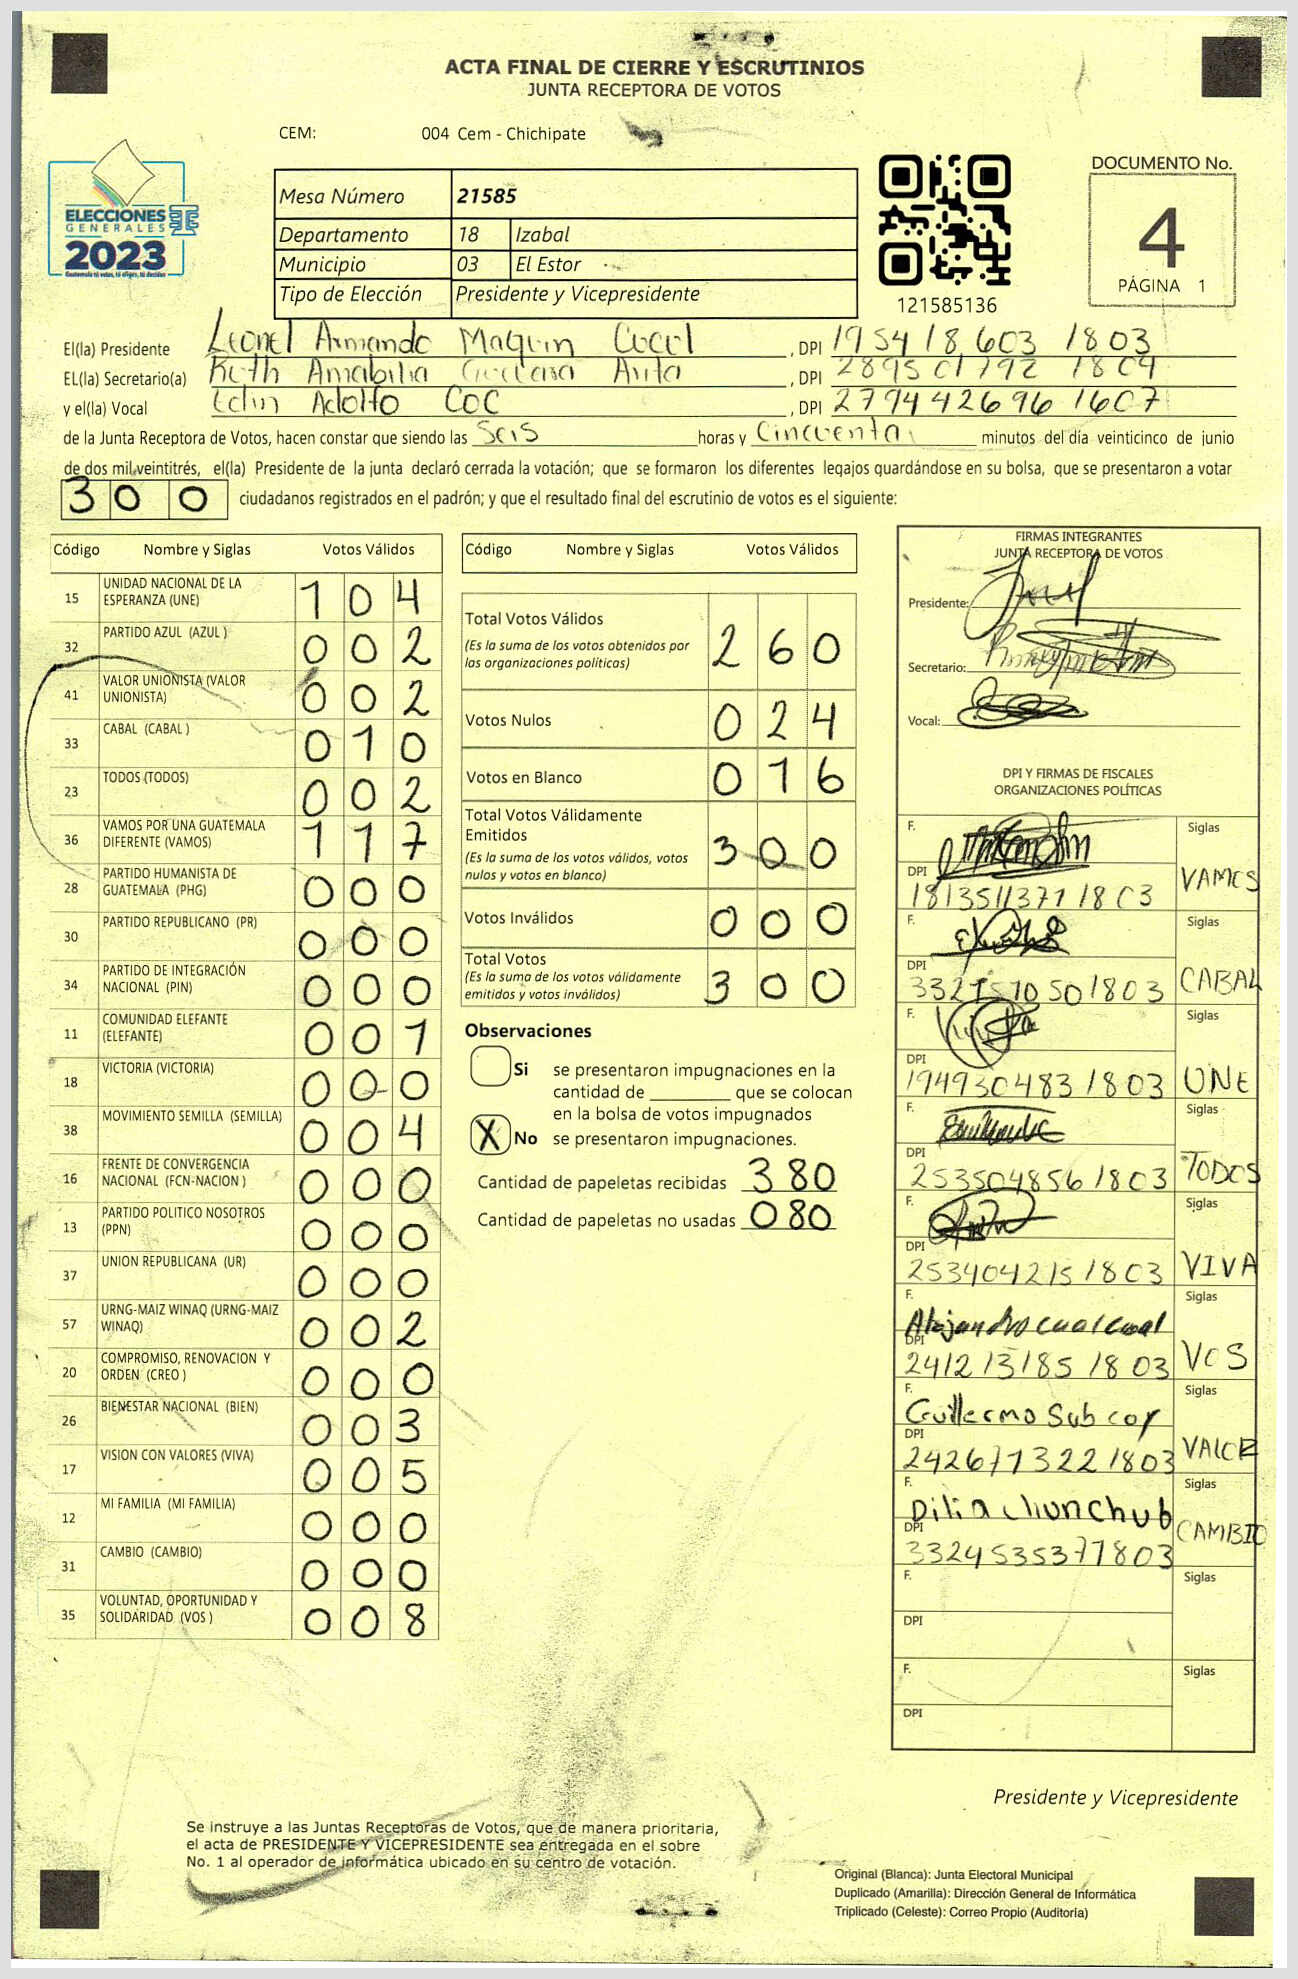 ACTA FINAL DE CIERRE Y ESCRUTINIOS
JUNTA RECEPTORA DE VOTOS
CEM: 004 Cem - Chichipate
ELECCIONES
GENERALES
2023
Guatemala tú votas, tú eliges, tú decides
Mesa Número 21585
Departamento 18 Izabal
Municipio 03 El Estor
Tipo de Elección Presidente y Vicepresidente
121585136
DOCUMENTO No.
4
PÁGINA 1
El(la) Presidente Leonel Armando Maquin Cucul , DPI 195418603 1803
EL(la) Secretario(a) Ruth Amabilia , DPI 289501792 1804
y el(la) Vocal Edin Adolfo Coc , DPI 279442696 1607
de la Junta Receptora de Votos, hacen constar que siendo las Seis horas y Cincuenta minutos del día veinticinco de junio
de dos mil veintitrés, el(la) Presidente de la junta declaró cerrada la votación; que se formaron los diferentes legajos quardándose en su bolsa, que se presentaron a votar
300 ciudadanos registrados en el padrón; y que el resultado final del escrutinio de votos es el siguiente:
Código Nombre y Siglas Votos Válidos
15 UNIDAD NACIONAL DE LA ESPERANZA (UNE) 104
32 PARTIDO AZUL (AZUL ) 002
41 VALOR UNIONISTA (VALOR UNIONISTA) 002
33 CABAL (CABAL ) 010
23 TODOS (TODOS) 002
36 VAMOS POR UNA GUATEMALA DIFERENTE (VAMOS) 117
28 PARTIDO HUMANISTA DE GUATEMALA (PHG) 000
30 PARTIDO REPUBLICANO (PR) 000
34 PARTIDO DE INTEGRACIÓN NACIONAL (PIN) 000
11 COMUNIDAD ELEFANTE (ELEFANTE) 001
18 VICTORIA (VICTORIA) 000
38 MOVIMIENTO SEMILLA (SEMILLA) 004
16 FRENTE DE CONVERGENCIA NACIONAL (FCN-NACION ) 000
13 PARTIDO POLITICO NOSOTROS (PPN) 000
37 UNION REPUBLICANA (UR) 000
57 URNG-MAIZ WINAQ (URNG-MAIZ WINAQ) 002
20 COMPROMISO, RENOVACION Y ORDEN (CREO ) 000
26 BIENESTAR NACIONAL (BIEN) 003
17 VISION CON VALORES (VIVA) 005
12 MI FAMILIA (MI FAMILIA) 000
31 CAMBIO (CAMBIO) 000
35 VOLUNTAD, OPORTUNIDAD Y SOLIDARIDAD (VOS ) 008
Código Nombre y Siglas Votos Válidos
Total Votos Válidos 260
(Es la suma de los votos obtenidos por
las organizaciones políticas)
Votos Nulos 024
Votos en Blanco 016
Total Votos Válidamente
Emitidos 300
(Es la suma de los votos válidos, votos
nulos y votos en blanco)
Votos Inválidos 000
Total Votos 300
(Es la suma de los votos válidamente
emitidos y votos inválidos)
Observaciones
Si se presentaron impugnaciones en la
cantidad de ________ que se colocan
en la bolsa de votos impugnados
X No se presentaron impugnaciones.
Cantidad de papeletas recibidas 380
Cantidad de papeletas no usadas 080
FIRMAS INTEGRANTES
JUNTA RECEPTORA DE VOTOS
Presidente:
Secretario:
Vocal:
DPI Y FIRMAS DE FISCALES
ORGANIZACIONES POLÍTICAS
F. Siglas
DPI 181351137 1 1803 VAMOS
F. Siglas
DPI 1803 CABAL
F. Siglas
DPI 194930483 1803 UNE
F. Siglas
DPI 253504856 1803 TODOS
F. Siglas
DPI 253404215 1803 VIVA
F. Alejandro cual cual Siglas
DPI 2412 13185 1803 VOS
F. Guillermo Sub coy Siglas
DPI 242671322 1803 VALOR
F. Dilia chunchub Siglas
DPI 332453537 1803 CAMBIO
F. Siglas
DPI
F. Siglas
DPI
Presidente y Vicepresidente
Se instruye a las Juntas Receptoras de Votos, que de manera prioritaria,
el acta de PRESIDENTE Y VICEPRESIDENTE sea entregada en el sobre
No. 1 al operador de informática ubicado en su centro de votación.
Original (Blanca): Junta Electoral Municipal
Duplicado (Amarilla): Dirección General de Informática
Triplicado (Celeste): Correo Propio (Auditoría)